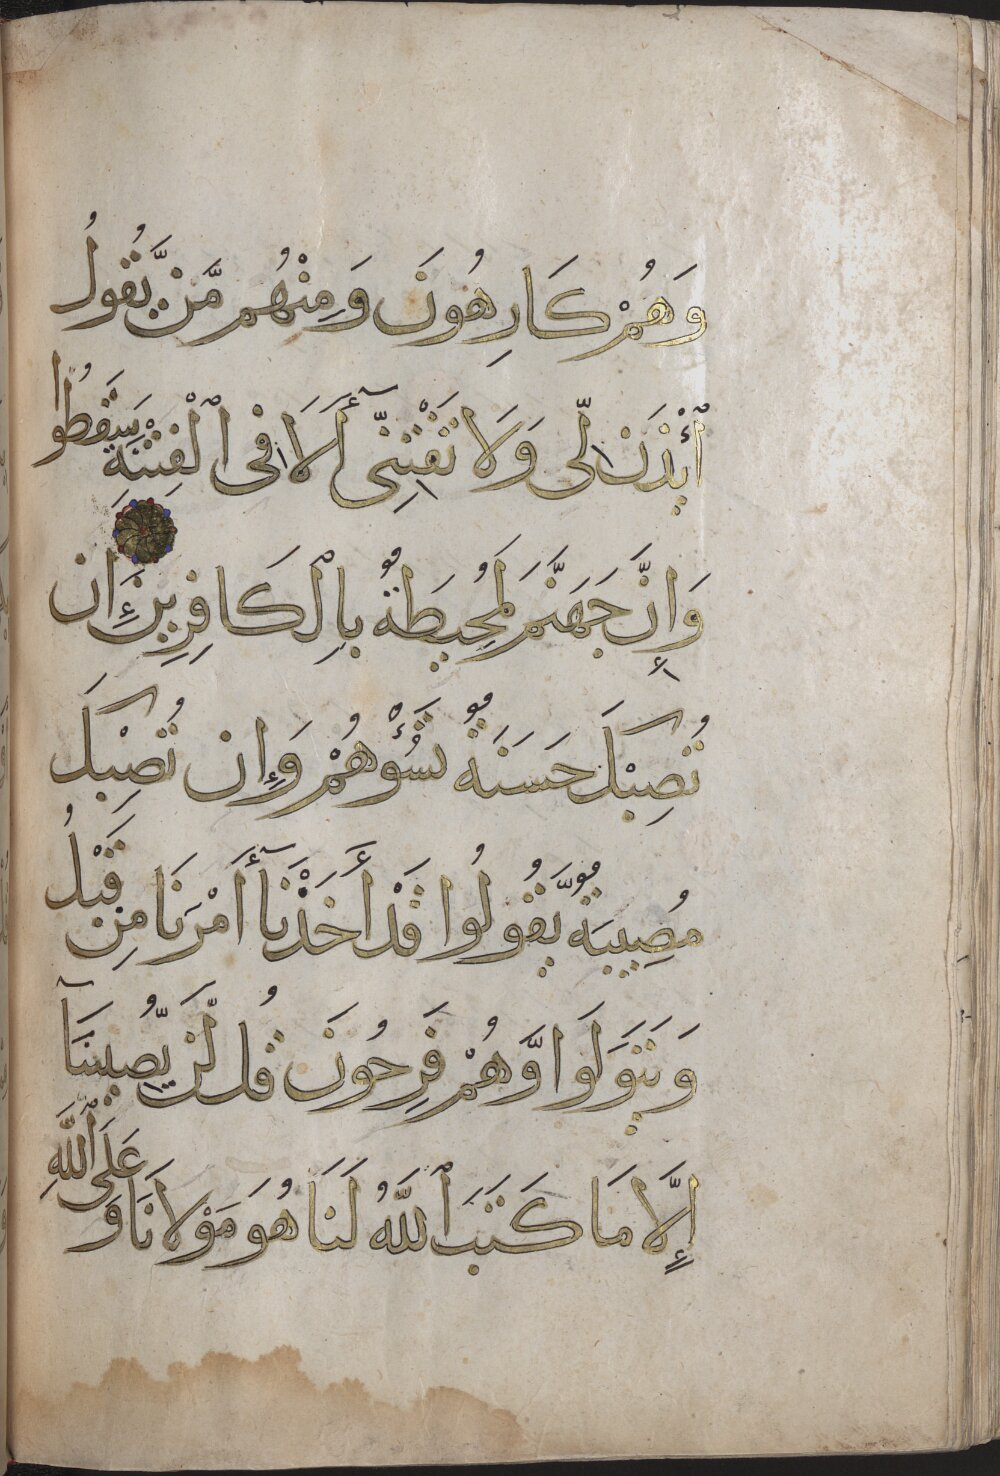 وَهُمْ كَارِهُونَ وَمِنْهُم مَّن يَّقُولُ
ٱئْذَن لِّى وَلَا تَفْتِنِّىٓ أَلَا فِى ٱلْفِتْنَةِ سَقَطُوا
وَإِنَّ جَهَنَّمَ لَمُحِيطَةٌ بِٱلْكَافِرِينَ إِن
تُصِبْكَ حَسَنَةٌ تَسُؤْهُمْ وَإِن تُصِبْكَ
مُصِيبَةٌ يَّقُولُوا قَدْ أَخَذْنَآ أَمْرَنَا مِن قَبْلُ
وَيَتَوَلَّوا وَّهُمْ فَرِحُونَ قُل لَّن يُّصِيبَنَآ
إِلَّا مَا كَتَبَ ٱللَّهُ لَنَا هُوَ مَوْلَانَا وَعَلَى ٱللَّهِ